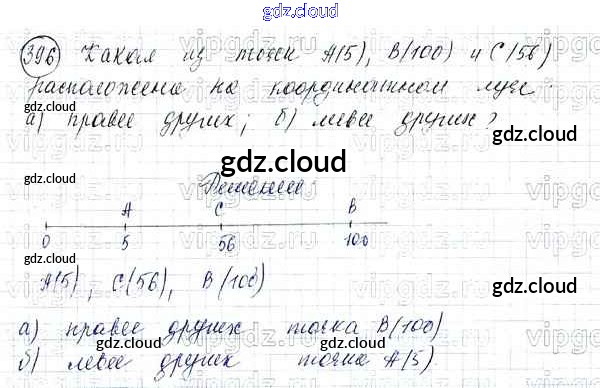 gdz.cloud
396 Какая из точек A(5), B(100) и C(56)
расположена на координатном луче
а) правее других; б) левее других?
gdz.cloud
gdz.cloud
gdz.cloud
Решение:
A C B
0 5 56 100
gdz.cloud
A(5), C(56), B(100)
gdz.cloud
а) правее других точка B(100)
б) левее других точка A(5).
gdz.cloud
gdz.cloud